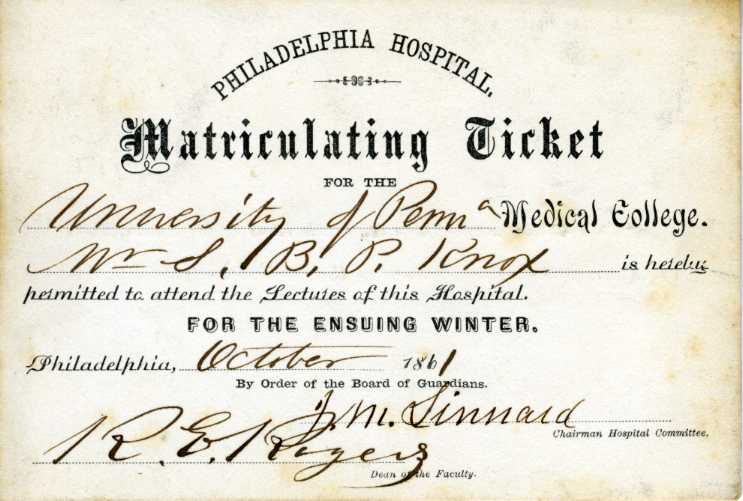 PHILADELPHIA HOSPITAL.
Matriculating Ticket
FOR THE
University of Penn^a Medical College.
Mr S. B. P. Knox is hereby
permitted to attend the Lectures of this Hospital.
FOR THE ENSUING WINTER.
Philadelphia, October 1861
By Order of the Board of Guardians.
J. M. Linnard
Chairman Hospital Committee.
R. E. Rogers
Dean of the Faculty.